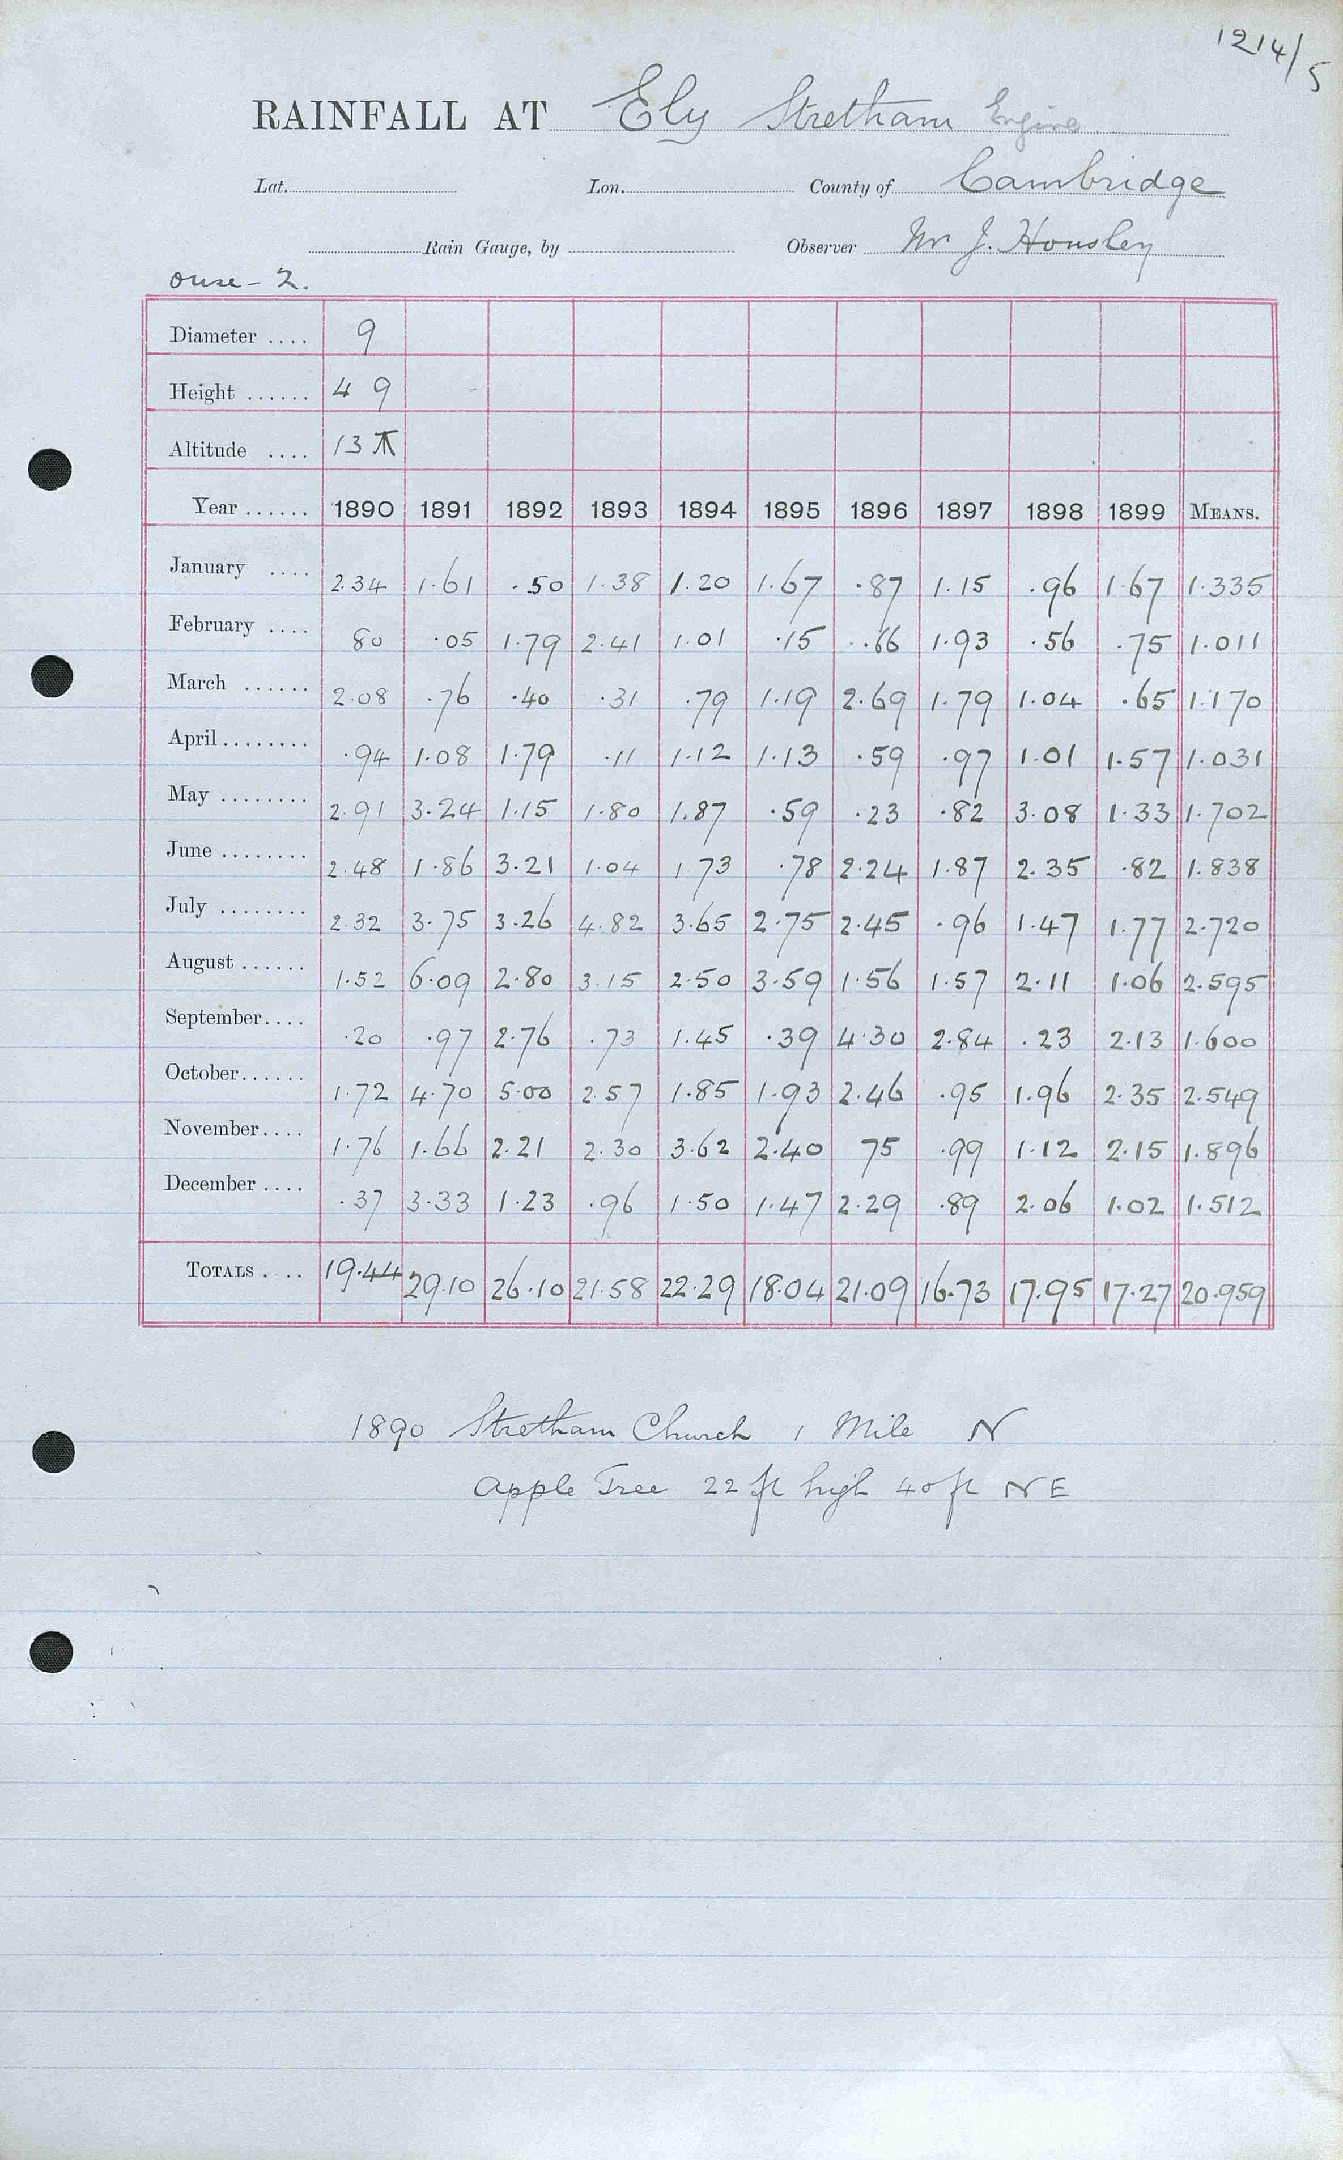 1214/5
RAINFALL AT Ely Stretham Engine
Lat. Lon. County of Cambridge
Rain Gauge, by Observer Mr J. Housley
Ouse - 2.
Diameter .... 9
Height ...... 4 9
Altitude .... 13
Year ...... 1890 1891 1892 1893 1894 1895 1896 1897 1898 1899 MEANS.
January .... 2.34 1.61 .50 1.38 1.20 1.67 .87 1.15 .96 1.67 1.335
February .... 80 .05 1.79 2.41 1.01 .15 .66 1.93 .56 .75 1.011
March ...... 2.08 .76 .40 .31 .79 1.19 2.69 1.79 1.04 .65 1.170
April ........ .94 1.08 1.79 .11 1.12 1.13 .59 .97 1.01 1.57 1.031
May ........ 2.91 3.24 1.15 1.80 1.87 .59 .23 .82 3.08 1.33 1.702
June ........ 2.48 1.86 3.21 1.04 1.73 .78 2.24 1.87 2.35 .82 1.838
July ........ 2.32 3.75 3.26 4.82 3.65 2.75 2.45 .96 1.47 1.77 2.720
August ...... 1.52 6.09 2.80 3.15 2.50 3.59 1.56 1.57 2.11 1.06 2.595
September .... .20 .97 2.76 .73 1.45 .39 4.30 2.84 .23 2.13 1.600
October ...... 1.72 4.70 5.00 2.57 1.85 1.93 2.46 .95 1.96 2.35 2.549
November .... 1.76 1.66 2.21 2.30 3.62 2.40 75 .99 1.12 2.15 1.896
December .... .37 3.33 1.23 .96 1.50 1.47 2.29 .89 2.06 1.02 1.512
TOTALS .... 19.44 29.10 26.10 21.58 22.29 18.04 21.09 16.73 17.95 17.27 20.959
1890 Stretham Church 1 Mile N
Apple Tree 22 ft high 40 ft NE